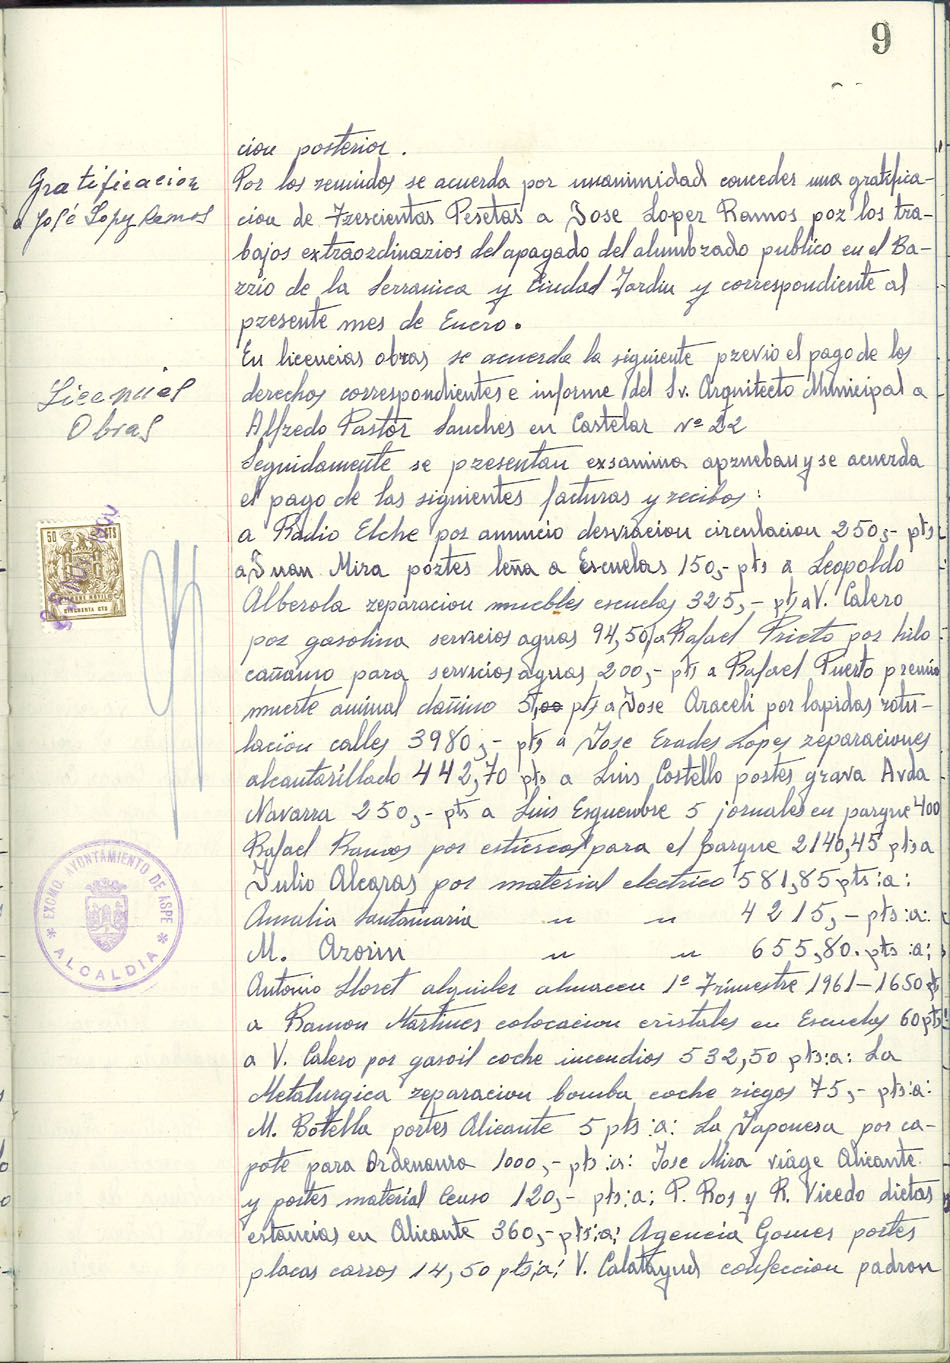 9
cion posterior.
Gratificacion
a José Lopez Ramos
Por los reunidos se acuerda por unanimidad conceder una gratifica-
cion de Trescientas Pesetas a Jose Loper Ramos por los tra-
bajos extraordinarios del apagado del alumbrado publico en el Ba-
rrio de la Serranica y Ciudad Jardin y correspondiente al
presente mes de Enero.
Licencias
Obras
En licencias obras se acuerda la siguiente previo el pago de los
derechos correspondientes e informe del Sr. Arquitecto Municipal a
Alfredo Pastor Sanches en Castelar nº 22
Seguidamente se presentan exsamina aprueban y se acuerda
el pago de las siguientes facturas y recibos:
a Radio Elche por anuncio desviacion circulacion 250,- pts
a Juan Mira portes leña a Escuelas 150,- pts a Leopoldo
Alberola reparacion muebles escuelas 325,- pts a V. Calero
por gasolina servicios aguas 94,50 a Rafael Prieto por hilo
cañamo para servicios aguas 200,- pts a Rafael Puerto premio
muerte animal dañino pts a Jose Araceli por lapidas rotu-
lacion calles 3980,- pts a Jose Erades Lopes reparaciones
alcantarillado 442,70 pts a Luis Costello portes grava Avda
Navarra 250,- pts a Luis Esquembre 5 jornales en parque 400
Rafael Ramos por estiercol para el parque 2140,45 pts a
Julio Alcaras por material electrico 581,85 pts:a:
Amalia Santamaria " " 4215,- pts:a:
M. Azorin " " 655,80. pts:a:
Antonio Lloret alquiler almacen 1º Trimestre 1961-1650 pts
a Ramon Martines colocacion cristales en Escuelas 60 pts
a V. Calero por gasoil coche incendios 532,50 pts:a: La
Metalurgica reparacion bomba coche riegos 75,- pts:a:
M. Botella portes Alicante 5 pts:a: La Japonesa por ca-
pote para Ordenanza 1000,- pts:a: Jose Mira viage Alicante
y portes material Censo 120,- pts:a: P. Ros y R. Vicedo dietas
estancias en Alicante 360,- pts:a: Agencia Gomes portes
placas carros 14,50 pts:a: V. Calatayud confeccion padron
50 CTS
CINCUENTA CTS
EXCMO. AYUNTAMIENTO DE ASPE
* ALCALDIA *